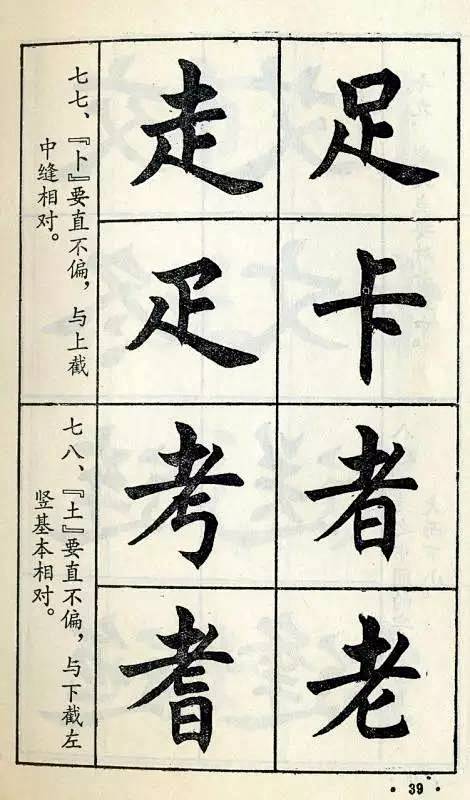 足
卡
者
老
走
疋
考
耆
七七、『卜』要直不偏，与上截
中缝相对。
七八、『土』要直不偏，与下截左
竖基本相对。
· 39 ·